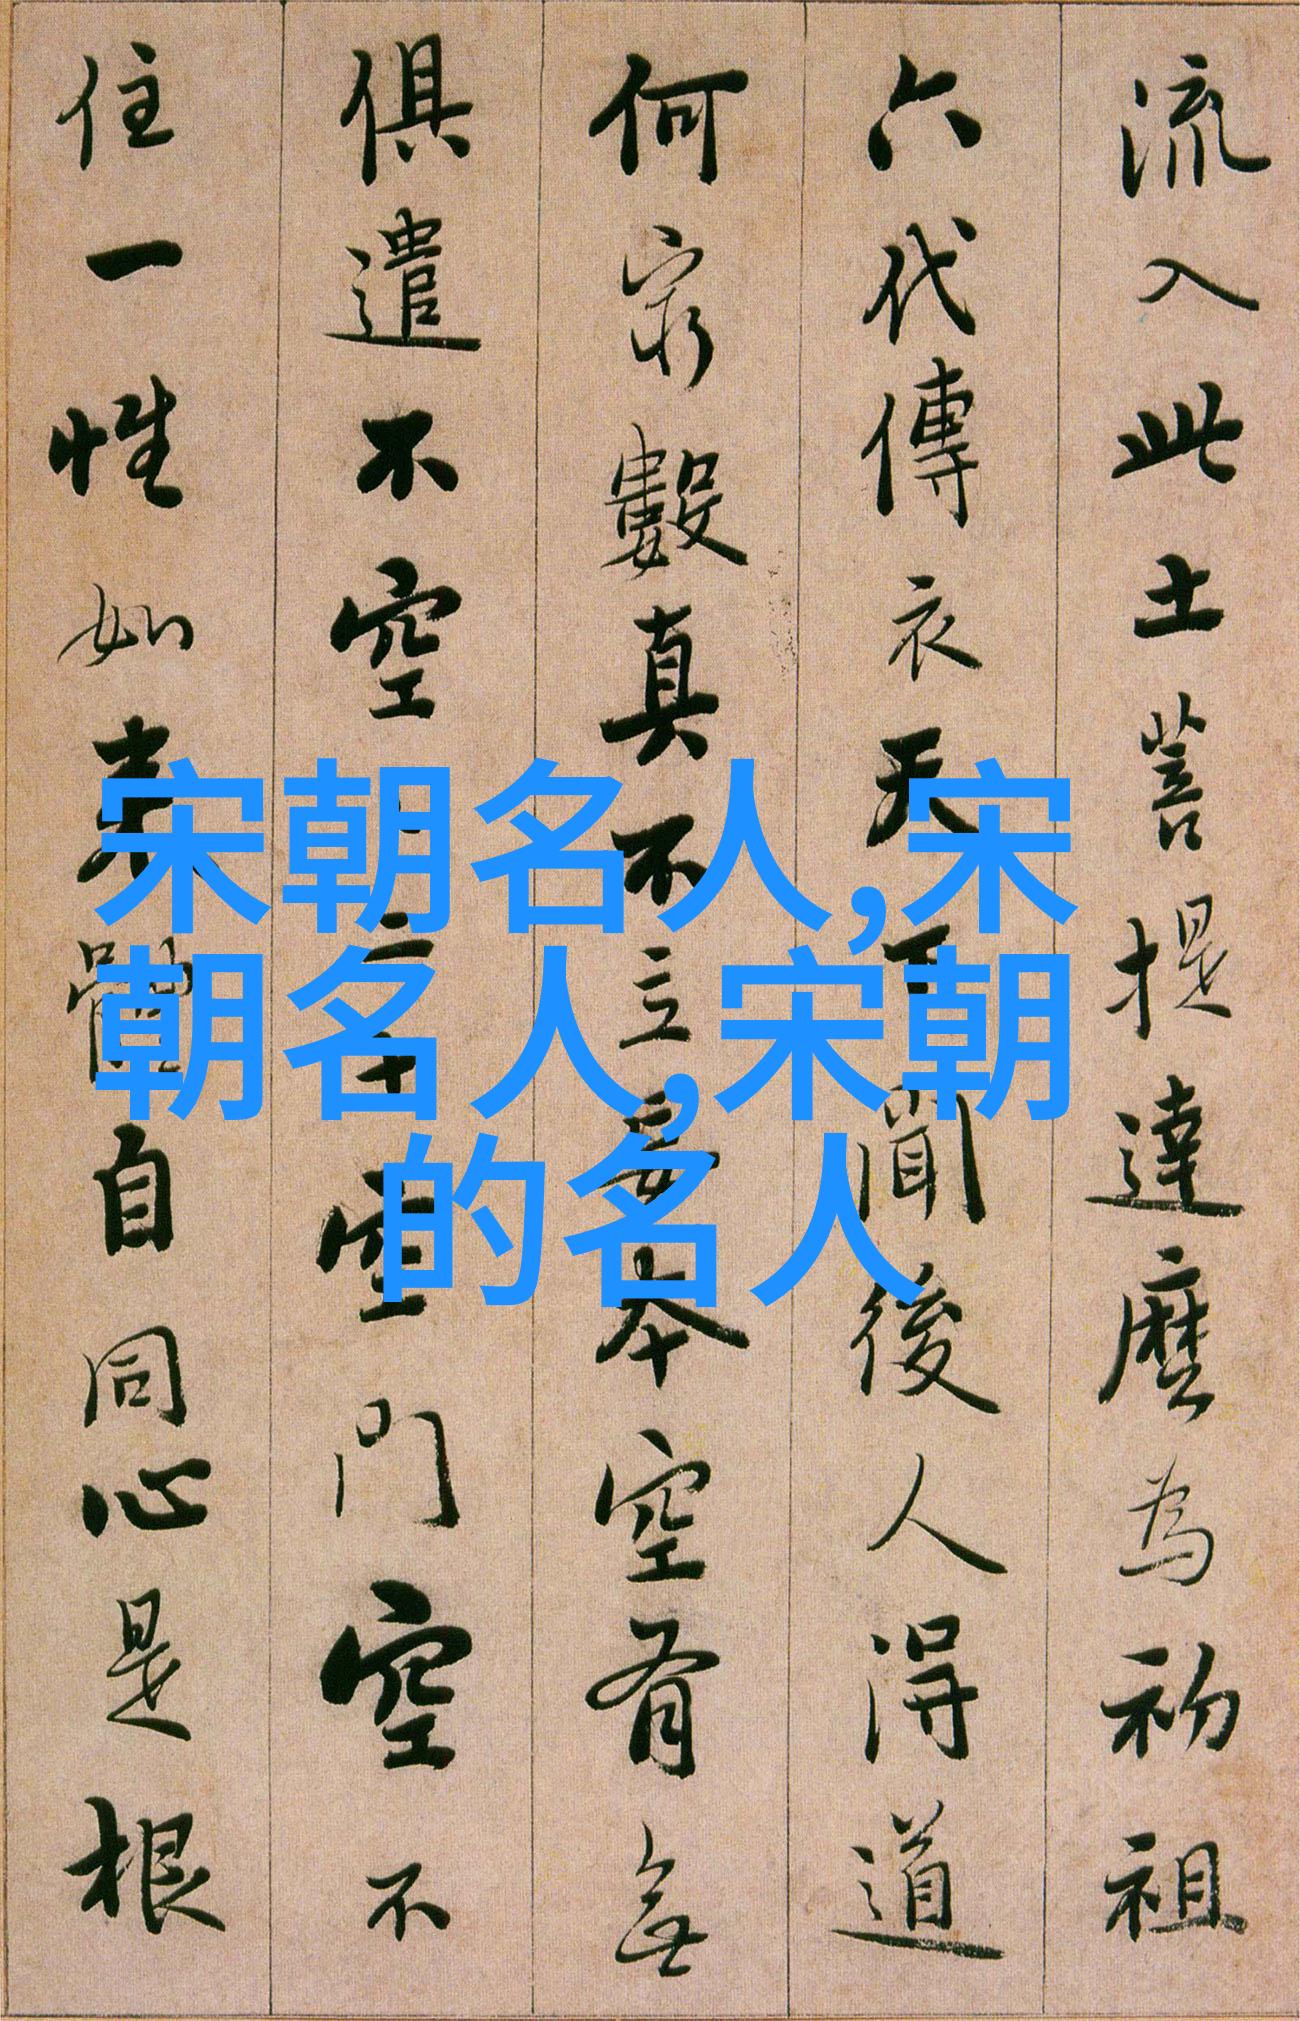 流入此土菩提達麼為初祖
六代傳衣天下聞後人得道
何窮數真不立妄本空有無
俱遣不空二十空門空不
住一性如来體自同心是根
宋朝名人,宋
朝名人,宋朝
的名人